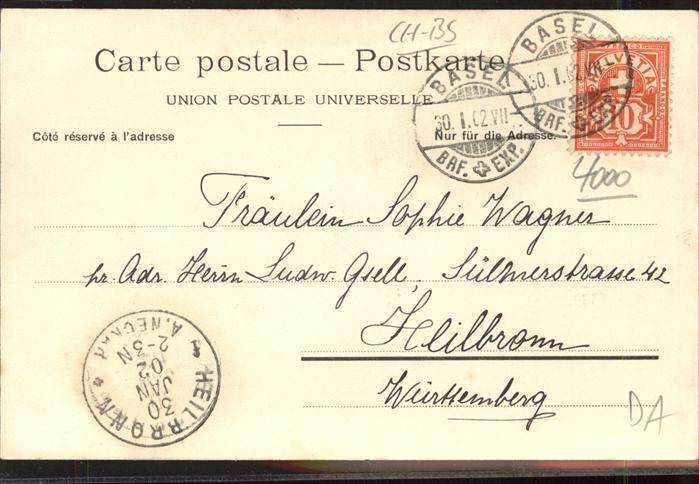 CH-BS
Carte postale — Postkarte
UNION POSTALE UNIVERSELLE
Côté réservé à l'adresse
Nur für die Adresse.
BASEL
30.I.02.VII
BRF. EXP.
BASEL
30.I.02.VII
BRF. EXP.
HELVETIA
10
4000
Fräulein Sophie Wagner
pr. Adr. Herrn Ludw. Gsell, Sülmerstrasse 42
Heilbronn
Württemberg
HEILBRONN
A. NECKAR
2-3N
30
JAN
02
DA